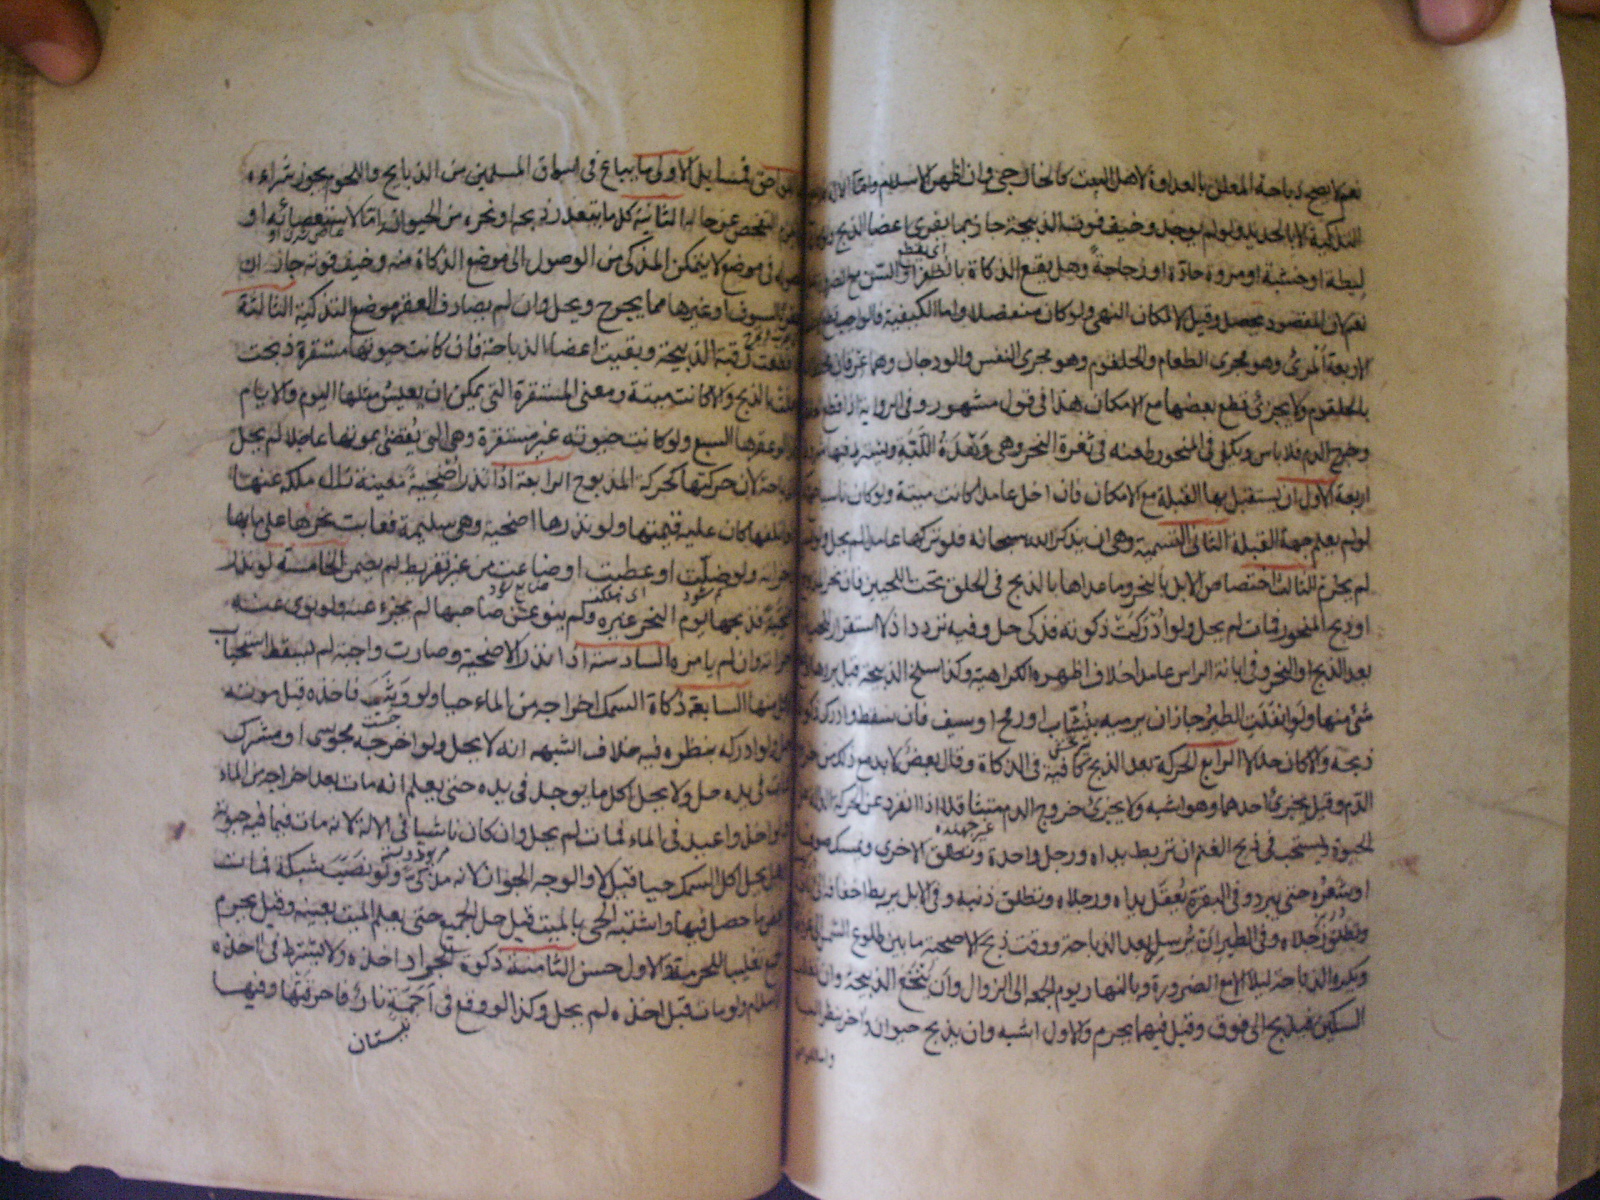 نعم لا يصح ذباحة المعلن بالعداوة لاهل البيت كالخارجي وان اظهر الاسلام واما الالة
التذكية الا بالحديد ولو لم يوجد وخيف فوت الذبيحة جاز بما يفرى اعضا الذبح ولو
ليطة او خشبة او مروة حادة او زجاجة وهل يقع الذكاة بالظفر او السن مع الضرورة
نعم لان المقصود يحصل وقيل لا لمكان النهي ولو كان منفصلا واما الكيفية فالواجب قطع
الاربعة المرئ وهو مجرى الطعام والحلقوم وهو مجرى النفس والودجان وهما عرقان محيطان
بالحلقوم ولا يجزئ قطع بعضها مع الامكان هذا في قول مشهور وفي الرواية اذا قطع
وخرج الدم فلا باس ويكفي في المنحور طعنه في ثغرة النحر وهي وهدة اللبة ويشترط فيها شروط
اربعة الاول ان يستقبل بها القبلة مع الامكان فان اخل عامدا كانت ميتة ولو كان ناسيا
لو لم يعلم جهة القبلة الثاني التسمية وهي ان يذكر الله سبحانه فلو تركها عامدا لم يحل ولو
لم يحرم الثالث اختصاص الابل بالنحر وما عداها بالذبح في الحلق تحت اللحيين فان نحر
او ذبح المنحور فمات لم يحل ولو ادركت ذكوته فذكى حل وفيه تردد اذ لا استقرار لحيوته
بعد الذبح او النحر وفي ابانة الراس عامدا خلاف اظهره الكراهية وكذا سلخ الذبيحة قبل بردها
شئ منها ولو انفلت الطير جاز ان يرميه بنشاب او رمح او سيف فان سقط وادرك ذكوته
ذبحه والا كان حلالا الرابع الحركة بعد الذبح كافية في الذكاة وقال بعض لا بد مع ذلك من خروج
الدم وقيل يجزئ احدهما وهو اشبه ولا يجزئ خروج الدم متثاقلا اذا انفرد عن الحركة الدالة
الحيوة ويستحب في ذبح الغنم ان تربط يداه ورجل واحدة وتطلق الاخرى ويمسك صوفه
او شعره حتى يبرد وفي البقرة يعقل يداه ورجلاه وتطلق ذنبه وفي الابل يربط اخفافه
وتطلق رجلاه وفي الطير ان يرسل بعد الذباحة ووقت ذبح الاضحية ما بين طلوع الشمس
ويكره الذباحة ليلا الا مع الضرورة وبالنهار يوم الجمعة الى الزوال وان ينخع الذبيحة وان تقلب
السكين فيذبح الى فوق وقيل فيهما يحرم والاول اشبه وان يذبح حيوان واخر ينظر اليه
فمسايل الاولى ما يباع في اسواق المسلمين من الذبايح واللحوم يجوز شراءه
التفحص عن حاله الثانية كل ما يتعذر ذبحه او نحره من الحيوان اما لاستعصائه او
في موضع لا يتمكن المذكى من الوصول الى موضع الذكاة منه وخيف فوته جاز ان
بالسيوف او غيرها مما يجرح ويحل وان لم يصادف العقر موضع التذكية الثالثة
قطعت رقبة الذبيحة وبقيت اعضا الذباحة فان كانت حيوتها مستقرة ذبحت
بالذبح والا كانت ميتة ومعنى المستقرة التي يمكن ان يعيش مثلها اليوم والايام
لو عقرها السبع ولو كانت حيوته غير مستقرة وهي التي يقضى بموتها عاجلا لم يحل
لان حركتها كحركة المذبوح الرابعة اذا نذر اضحية معينة زال ملكه عنها
اتلفها كان عليه قيمتها ولو نذرها اضحية وهي سليمة فعابت نحرها على ما بها
ولو ضلت او عطبت او ضاعت من غير تفريط لم يضمن الخامسة لو نذر
اضحية فذبحها يوم النحر غيره ولم ينو عن صاحبها لم يجزء عنه ولو نوى عنه
وان لم يامره السادسة اذا نذر الاضحية وصارت واجبة لم يسقط استحباب
منها السابعة ذكاة السمك اخراجه من الماء حيا ولو وثب فاخذه قبل موته
ولو ادركه بنظره فيه خلاف اشبهه انه لا يحل ولو اخرجه مجوسي او مشرك
في يده حل ولا يحل اكل ما يوجد في يده حتى يعلم انه مات بعد اخراجه من الماء
اخذ واعيد في الماء فمات لم يحل وان كان ناشبا في الالة لانه مات فيما فيه حيوته
هل يحل اكل السمك حيا قيل لا والوجه الجواز لانه مذكى ولو نصب شبكة فمات
ما حصل فيها واشتبه الحي بالميت قيل حل الجميع حتى يعلم الميت بعينه وقيل يحرم
تغليبا للحرمة والاول حسن الثامنة ذكوة الجراد اخذه ولا يشترط في اخذه
الاسلام ولو مات قبل اخذه لم يحل وكذا لو وقع في اجمة نار فاحرقتها وفيها